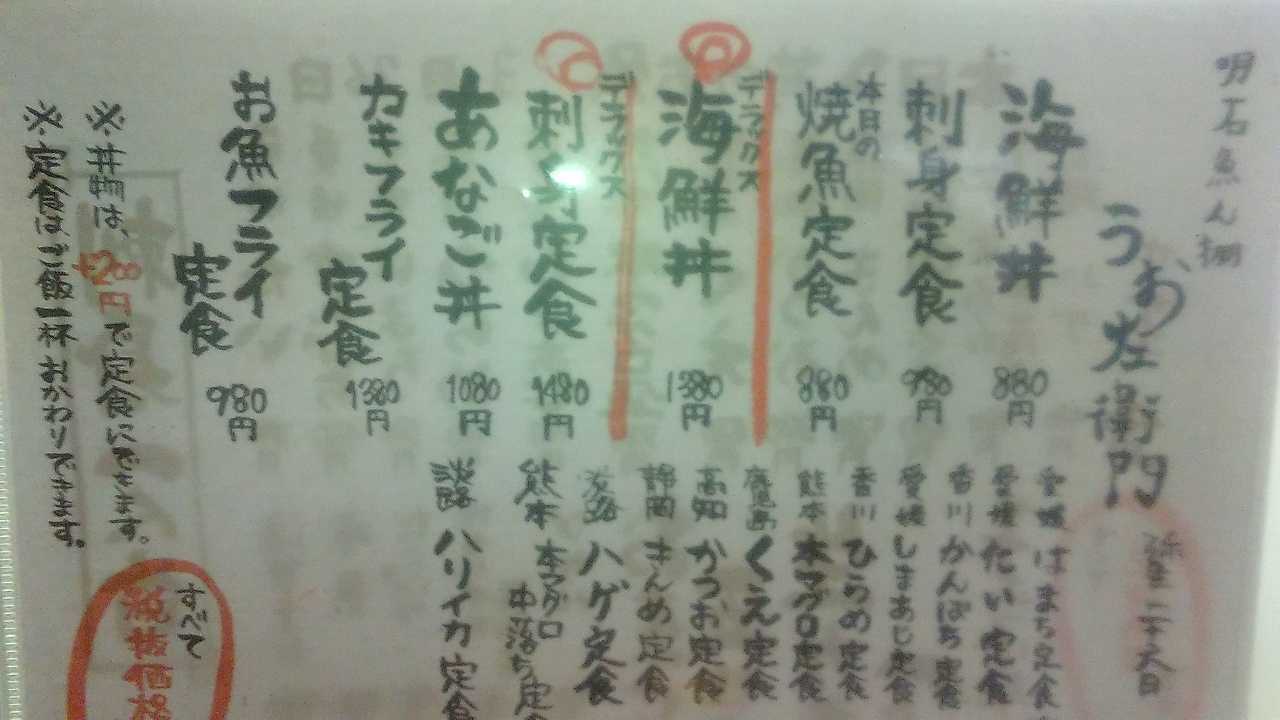 明石魚ん棚
うお左衛門
海鮮丼 880円
刺身定食 980円
本日の
焼魚定食 880円
デラックス
海鮮丼 1380円
デラックス
刺身定食 1480円
あなご丼 1080円
カキフライ
定食 1380円
お魚フライ
定食 980円
※丼物は、+200円で定食にできます。
※定食はご飯一杯おかわりできます。
愛媛 はまち定食
愛媛 たい定食
香川 かんぱち定食
愛媛 しまあじ定食
香川 ひらめ定食
熊本 本マグロ定食
鹿児島 くえ定食
高知 かつお定食
静岡 きんめ定食
淡路 ハゲ定食
熊本 本マグロ
中落ち定
淡路 ハリイカ定食
すべて
税抜価格